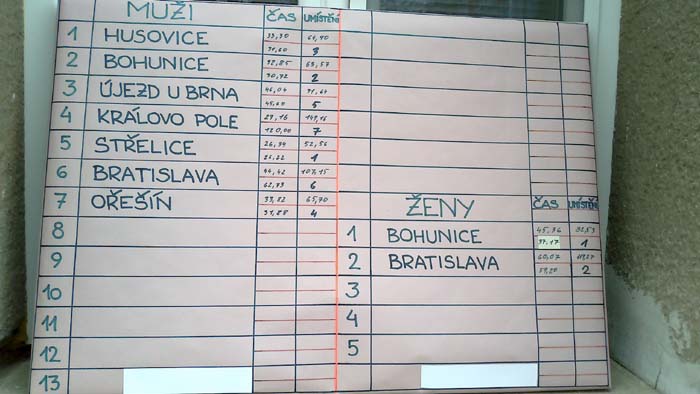 MUŽI ČAS UMÍSTĚNÍ
1 HUSOVICE 33,30
31,60 3
2 BOHUNICE 32,85 63,57
30,72 2
3 ÚJEZD U BRNA 46,04 91,64
45,60 5
4 KRÁLOVO POLE 29,16 149,16
120,00 7
5 STŘELICE 26,34 52,56
26,22 1
6 BRATISLAVA 44,42 107,15
62,73 6
7 OŘEŠÍN 33,82 65,70
31,88 4
8
9
10
11
12
13
ŽENY ČAS UMÍSTĚNÍ
1 BOHUNICE 45,36
37,17 1
2 BRATISLAVA 60,07 119,27
59,20 2
3
4
5